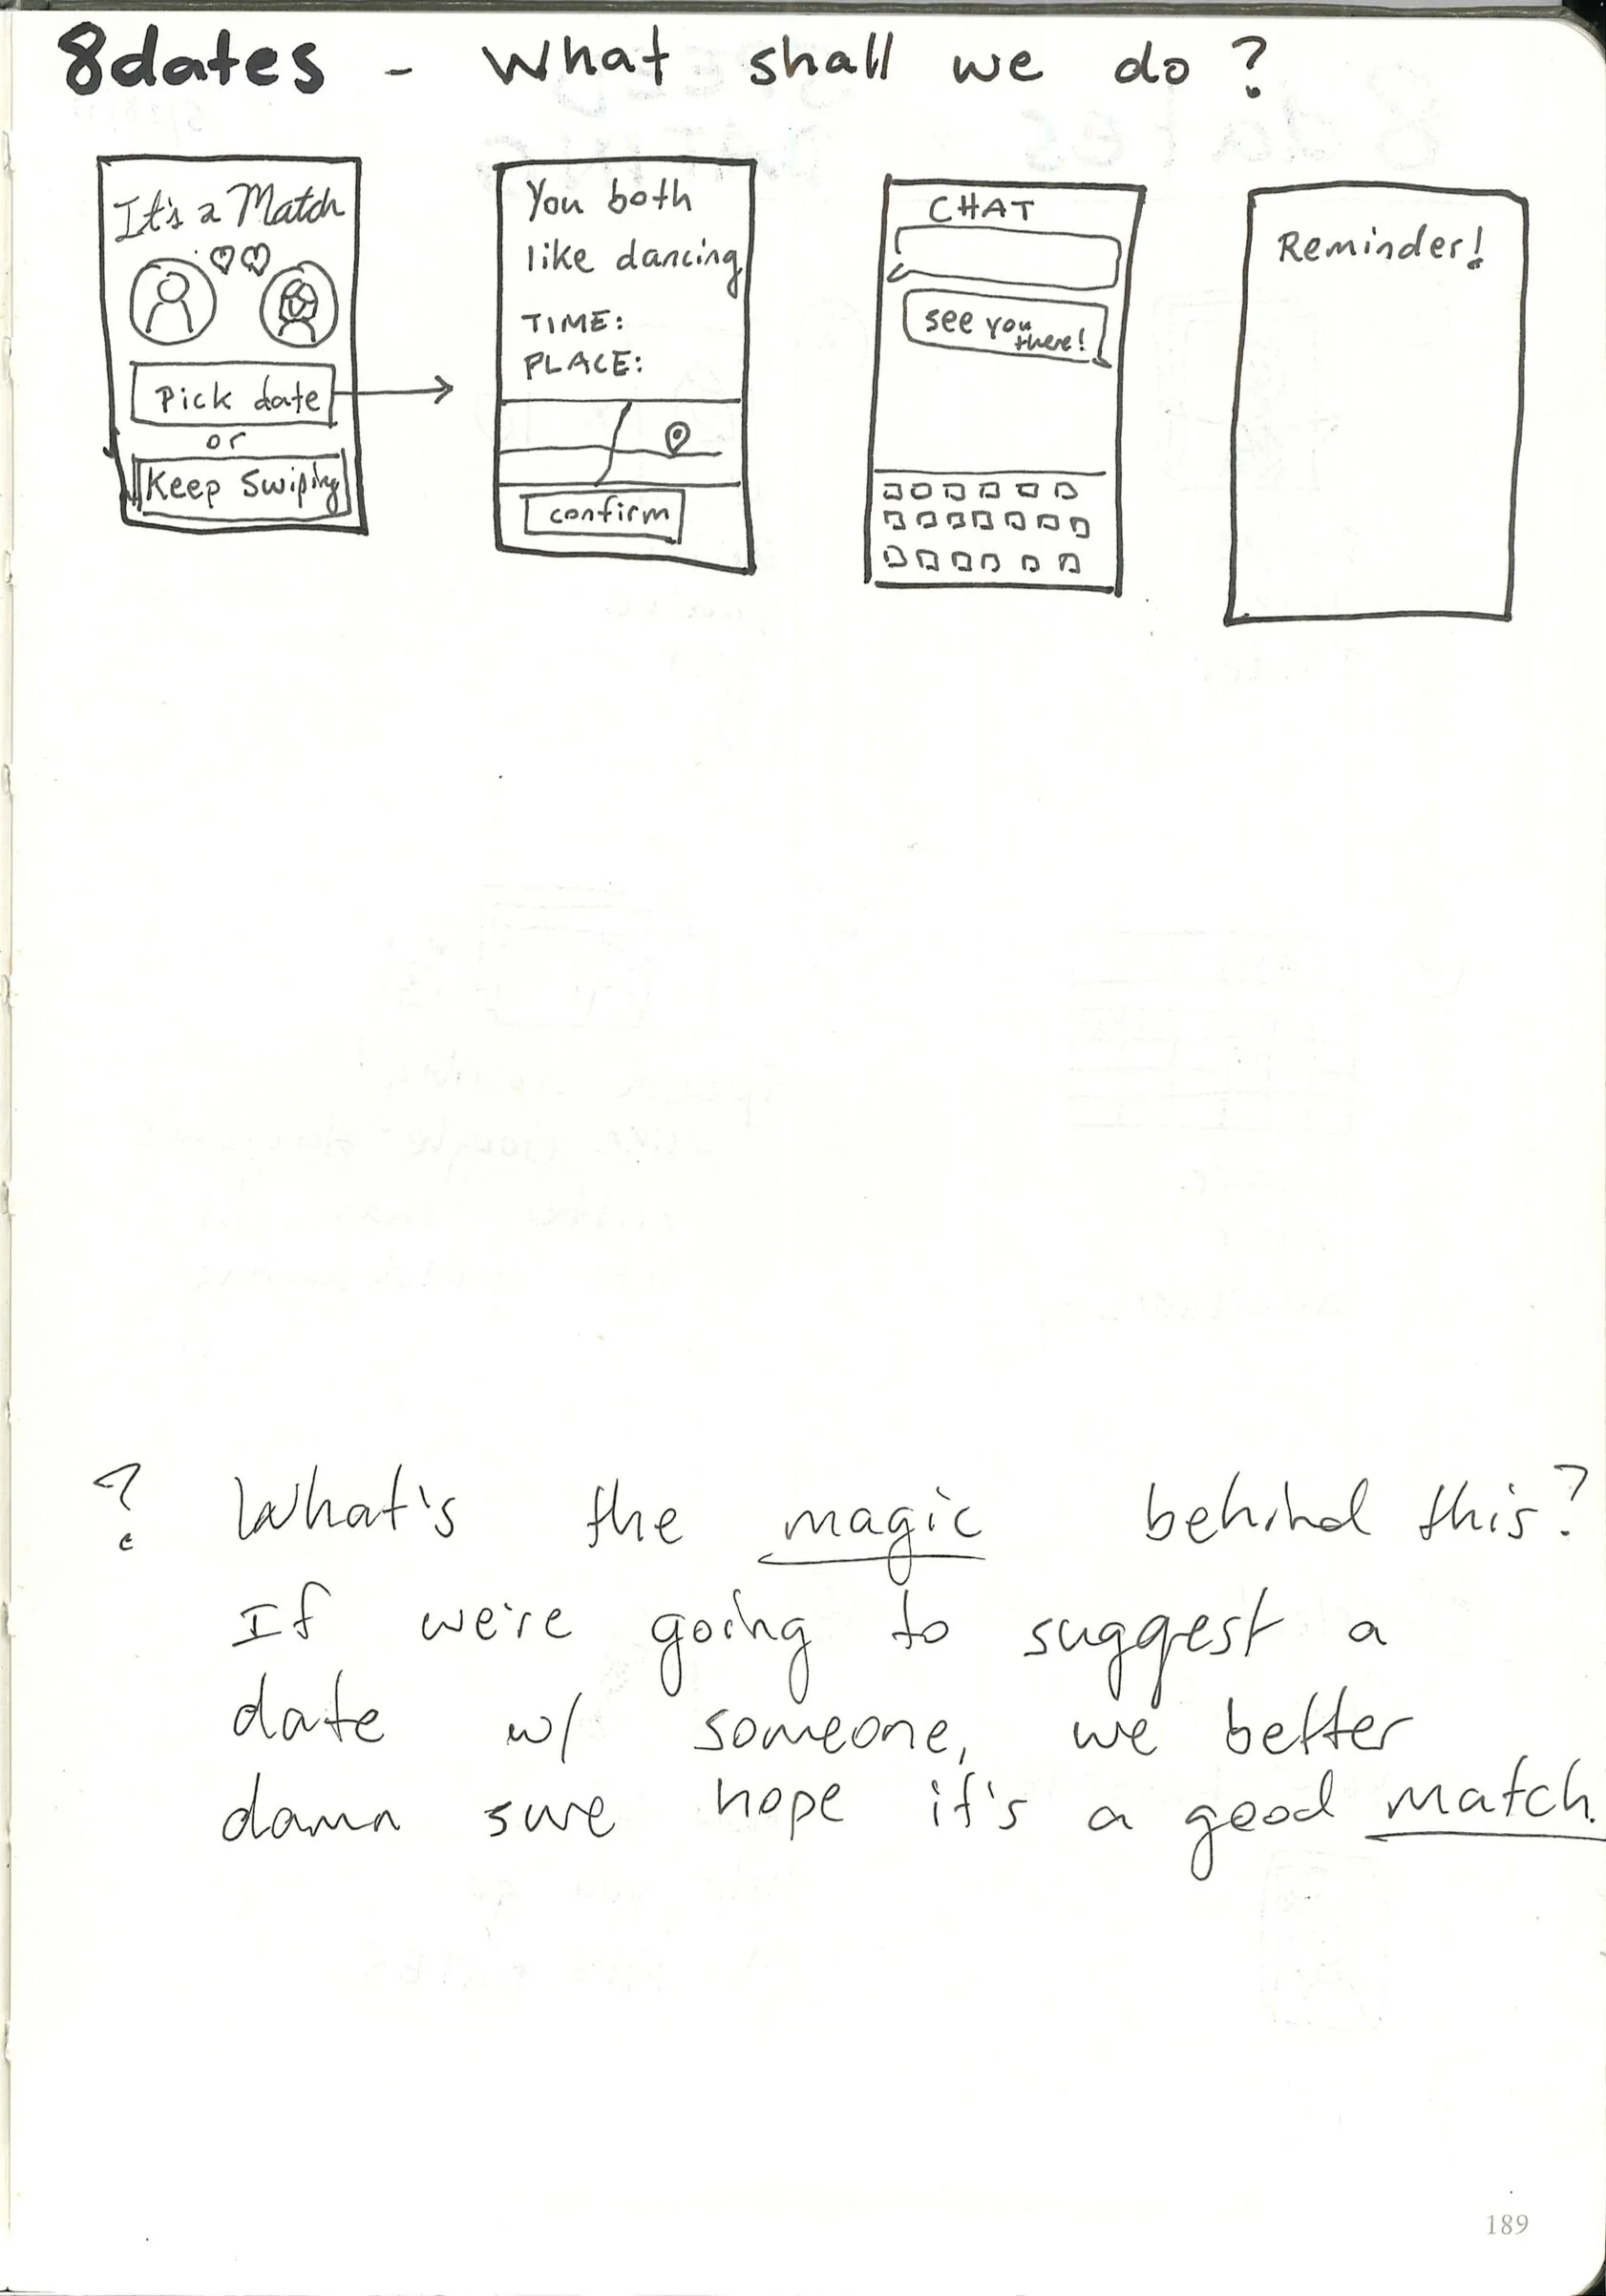 8dates - What shall we do?
It's a Match
Pick date
or
Keep Swiping
You both
like dancing
TIME:
PLACE:
confirm
CHAT
see you
there!
Reminder!
? What's the magic behind this?
If we're going to suggest a
date w/ someone, we better
damn sure hope it's a good match.
189